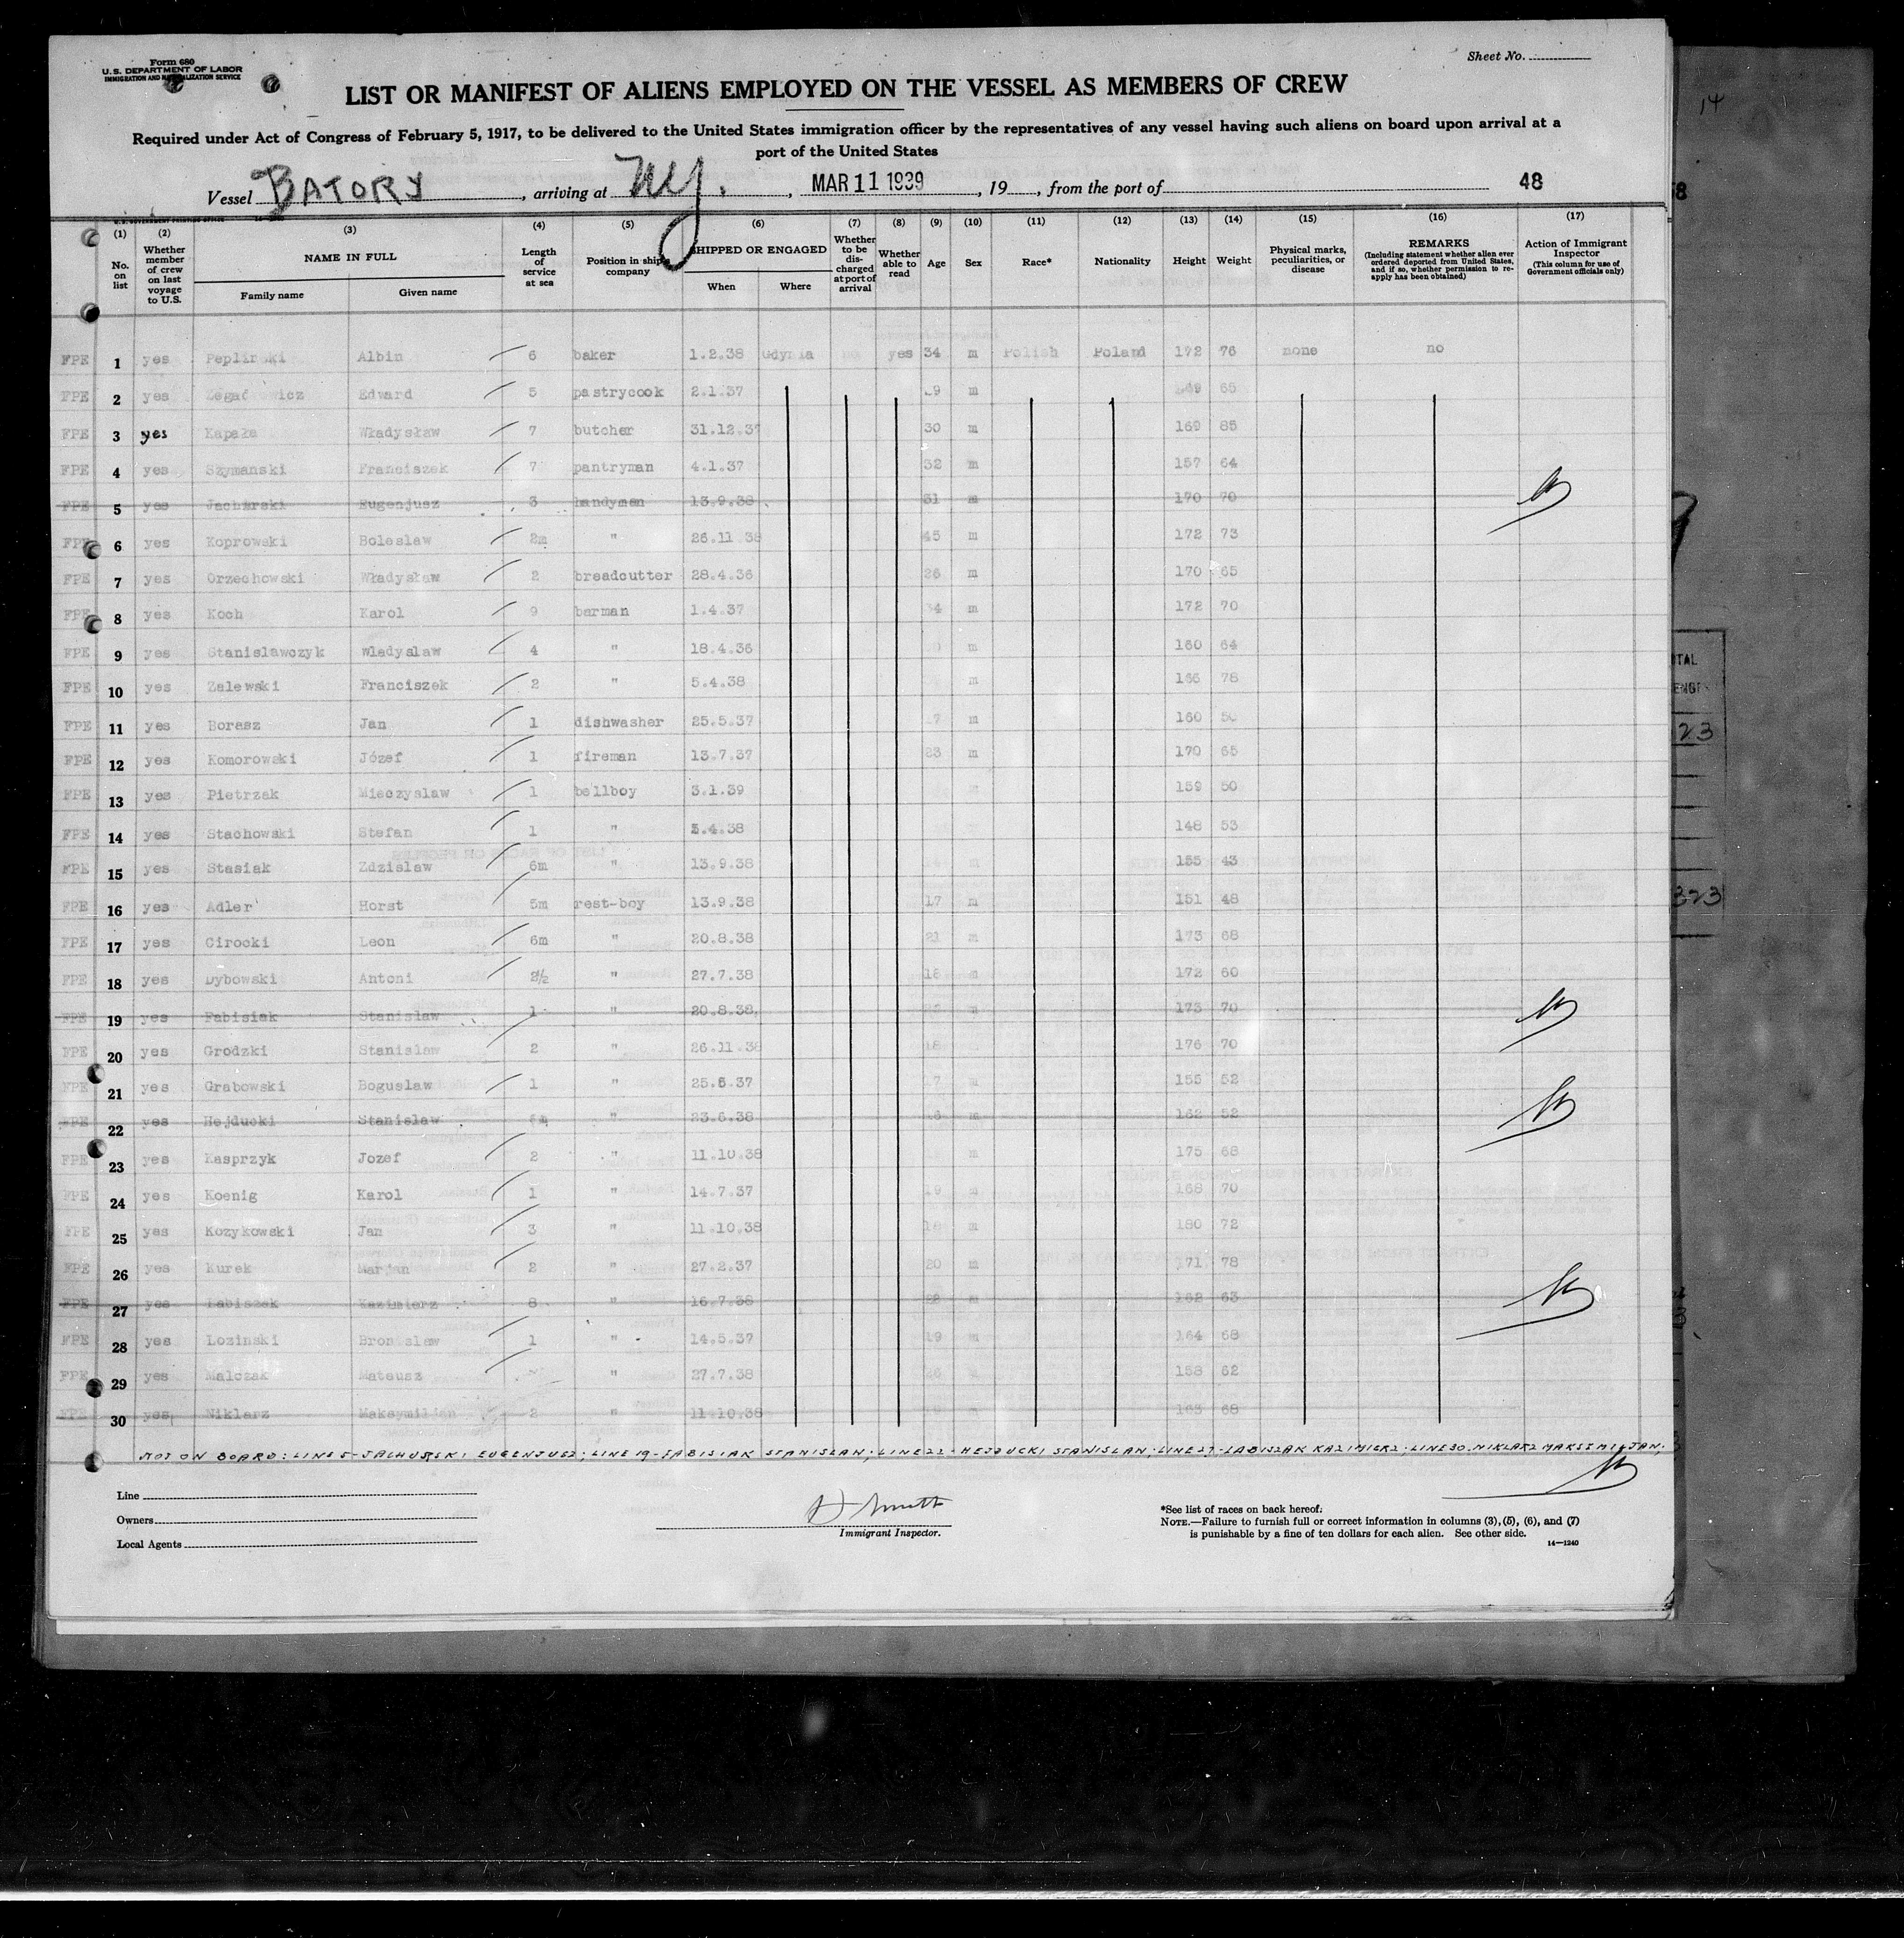 Form 680
U.S. DEPARTMENT OF LABOR
IMMIGRATION AND NATURALIZATION SERVICE
Sheet No.
LIST OR MANIFEST OF ALIENS EMPLOYED ON THE VESSEL AS MEMBERS OF CREW
Required under Act of Congress of February 5, 1917, to be delivered to the United States immigration officer by the representatives of any vessel having such aliens on board upon arrival at a
port of the United States
Vessel BATORY, arriving at NY., MAR 11 1939, 19, from the port of 48
(1) (2) (3) (4) (5) (6) (7) (8) (9) (10) (11) (12) (13) (14) (15) (16) (17)
No. on list
Whether member of crew on last voyage to U.S.
NAME IN FULL
Family name
Given name
Length of service at sea
Position in ship's company
SHIPPED OR ENGAGED
When
Where
Whether to be discharged at port of arrival
Whether able to read
Age
Sex
Race*
Nationality
Height
Weight
Physical marks, peculiarities, or disease
REMARKS
(Including statement whether alien ever ordered deported from United States, and if so, whether permission to reapply has been obtained)
Action of Immigrant Inspector
(This column for use of Government officials only)
FPE 1 yes Peplinski Albin 6 baker 1.2.38 Gdynia yes 34 m Polish Poland 172 76 none no
FPE 2 yes Edward 5 pastrycook 2.1.37 m 65
FPE 3 yes Kapała Władysław 7 butcher 31.12.37 30 m 169 85
FPE 4 yes Szymanski Franciszek 7 pantryman 4.1.37 32 m 157 64
FPE 5 yes Jacharski Eugenjusz 3 handyman 13.9.38 31 m 170 70
FPE 6 yes Koprowski Boleslaw 2m " 26.11 38 45 m 172 73
FPE 7 yes Orzechowski Władysław 2 breadcutter 28.4.36 26 m 170 65
FPE 8 yes Koch Karol 9 barman 1.4.37 34 m 172 70
FPE 9 yes Stanislawczyk Wladyslaw 4 " 18.4.36 m 160 64
FPE 10 yes Zalewski Franciszek 2 " 5.4.38 m 165 78
FPE 11 yes Borasz Jan 1 dishwasher 25.5.37 m 160 50
FPE 12 yes Komorowski Józef 1 fireman 13.7.37 23 m 170 65
FPE 13 yes Pietrzak Mieczyslaw 1 bellboy 3.1.39 159 50
FPE 14 yes Stachowski Stefan 1 " 5.4.38 148 53
FPE 15 yes Stasiak Zdzislaw 6m " 13.9.38 m 155 43
FPE 16 yes Adler Horst 5m rest-boy 13.9.38 17 m 151 48
FPE 17 yes Cirocki Leon 6m " 20.8.38 21 m 173 68
FPE 18 yes Dybowski Antoni 2½ " 27.7.38 18 m 172 60
FPE 19 yes Fabisiak Stanislaw 1 " 20.8.38 m 173 70
FPE 20 yes Grodzki Stanislaw 2 " 26.11.38 18 176 70
FPE 21 yes Grabowski Boguslaw 1 " 25.5.37 17 m 155 52
FPE 22 yes Hejducki Stanislaw " 23.6.38 m 162 52
FPE 23 yes Kasprzyk Jozef 2 " 11.10.38 m 175 68
FPE 24 yes Koenig Karol 1 " 14.7.37 19 m 168 70
FPE 25 yes Kozykowski Jan 3 " 11.10.38 m 180 72
FPE 26 yes Kurek Marjan 2 " 27.2.37 20 m 171 78
FPE 27 yes Labiszak Kazimierz 8 " 16.7.38 m 162 63
FPE 28 yes Lozinski Bronislaw 1 " 14.5.37 19 m 164 68
FPE 29 yes Malczak Mateusz " 27.7.38 26 m 158 62
FPE 30 yes Niklarz Maksymiljan 2 " 11.10.38 m 163 68
NOT ON BOARD: LINE 5-JACHURSKI EUGENJUSZ; LINE 19-FABISIAK STANISLAW; LINE 22-HEJDUCKI STANISLAW; LINE 27-LABISZAK KAZIMIERZ; LINE 30. NIKLARZ MAKSYMILJAN.
Line
Owners
Local Agents
Immigrant Inspector.
*See list of races on back hereof.
NOTE.—Failure to furnish full or correct information in columns (3), (5), (6), and (7)
is punishable by a fine of ten dollars for each alien. See other side.
14—1240
14
23
323